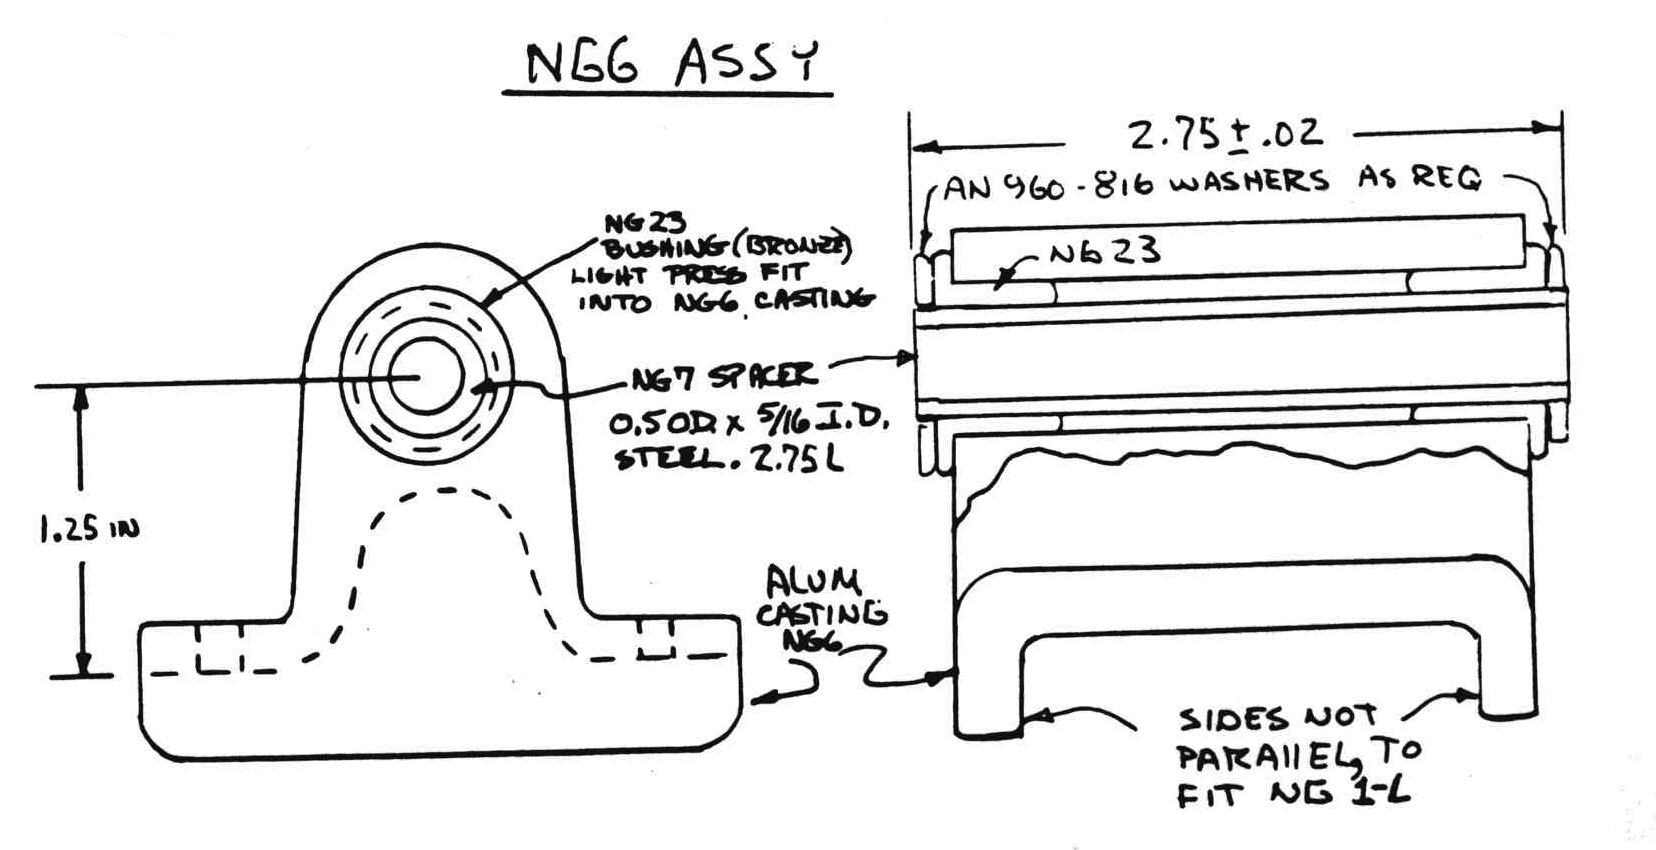 NG6 ASSY
2.75 ± .02
AN 960-816 WASHERS AS REQ
NG23
BUSHING (BRONZE)
LIGHT PRESS FIT
INTO NG6 CASTING
NG23
NG7 SPACER
0.5 O.D. x 5/16 I.D.
STEEL. 2.75 L
1.25 IN
ALUM
CASTING
NG6
SIDES NOT
PARALLEL, TO
FIT NG 1-L